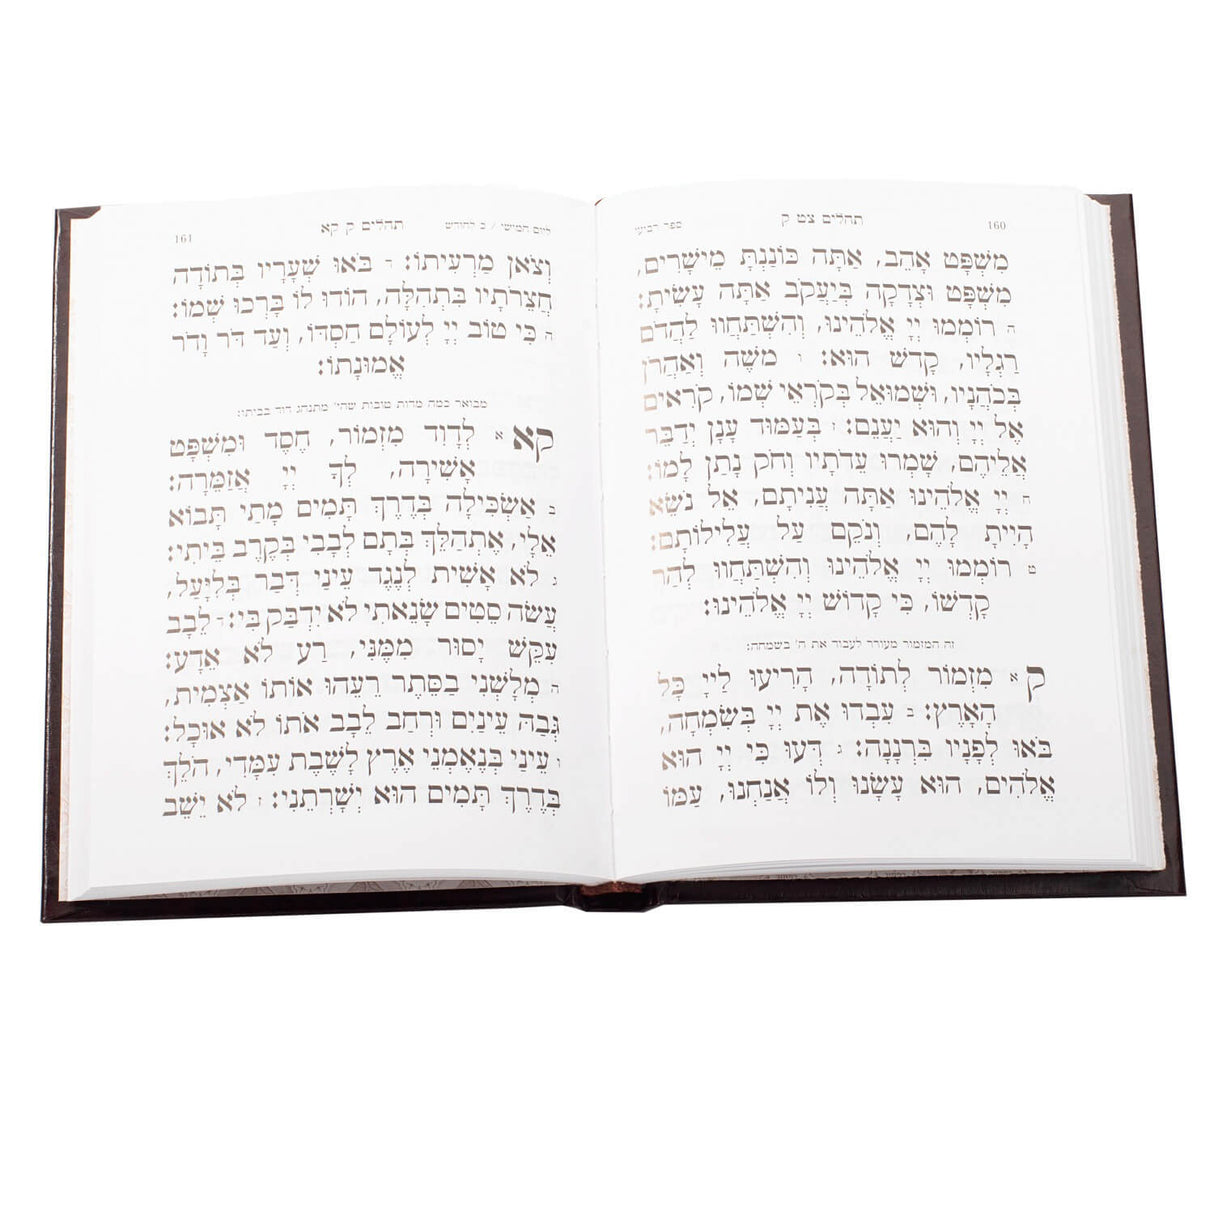 160
תהלים צט ק
ספר רביעי
מִשְׁפָּט אָהֵב, אַתָּה כּוֹנַנְתָּ מֵישָׁרִים,
מִשְׁפָּט וּצְדָקָה בְּיַעֲקֹב אַתָּה עָשִׂיתָ:
ה רוֹמְמוּ יְיָ אֱלֹהֵינוּ, וְהִשְׁתַּחֲווּ לַהֲדֹם
רַגְלָיו, קָדֹשׁ הוּא: ו מֹשֶׁה וְאַהֲרֹן
בְּכֹהֲנָיו, וּשְׁמוּאֵל בְּקֹרְאֵי שְׁמוֹ, קֹרִאים
אֶל יְיָ וְהוּא יַעֲנֵם: ז בְּעַמּוּד עָנָן יְדַבֵּר
אֲלֵיהֶם, שָׁמְרוּ עֵדֹתָיו וְחֹק נָתַן לָמוֹ:
ח יְיָ אֱלֹהֵינוּ אַתָּה עֲנִיתָם, אֵל נֹשֵׂא
הָיִיתָ לָהֶם, וְנֹקֵם עַל עֲלִילוֹתָם:
ט רוֹמְמוּ יְיָ אֱלֹהֵינוּ וְהִשְׁתַּחֲווּ לְהַר
קָדְשׁוֹ, כִּי קָדוֹשׁ יְיָ אֱלֹהֵינוּ:
זה המזמור מעורר לעבוד את ה' בשמחה:
ק א מִזְמוֹר לְתוֹדָה, הָרִיעוּ לַייָ כָּל
הָאָרֶץ: ב עִבְדוּ אֶת יְיָ בְּשִׂמְחָה,
בֹּאוּ לְפָנָיו בִּרְנָנָה: ג דְּעוּ כִּי יְיָ הוּא
אֱלֹהִים, הוּא עָשָׂנוּ וְלוֹ אֲנַחְנוּ, עַמּוֹ
ליום חמישי / כ לחודש
תהלים ק קא
161
וְצֹאן מַרְעִיתוֹ: ד בֹּאוּ שְׁעָרָיו בְּתוֹדָה
חֲצֵרֹתָיו בִּתְהִלָּה, הוֹדוּ לוֹ בָּרְכוּ שְׁמוֹ:
ה כִּי טוֹב יְיָ לְעוֹלָם חַסְדּוֹ, וְעַד דֹּר וָדֹר
אֱמוּנָתוֹ:
מבואר כמה מדות טובות שהי' מתנהג דוד בביתו:
קא א לְדָוִד מִזְמוֹר, חֶסֶד וּמִשְׁפָּט
אָשִׁירָה, לְךָ יְיָ אֲזַמֵּרָה:
ב אַשְׂכִּילָה בְּדֶרֶךְ תָּמִים מָתַי תָּבוֹא
אֵלָי, אֶתְהַלֵּךְ בְּתָם לְבָבִי בְּקֶרֶב בֵּיתִי:
ג לֹא אָשִׁית לְנֶגֶד עֵינַי דְּבַר בְּלִיָּעַל,
עֲשֹׂה סֵטִים שָׂנֵאתִי לֹא יִדְבַּק בִּי: ד לֵבָב
עִקֵּשׁ יָסוּר מִמֶּנִּי, רָע לֹא אֵדָע:
ה מְלָשְׁנִי בַסֵּתֶר רֵעֵהוּ אוֹתוֹ אַצְמִית,
גְּבַהּ עֵינַיִם וּרְחַב לֵבָב אֹתוֹ לֹא אוּכָל:
ו עֵינַי בְּנֶאֶמְנֵי אֶרֶץ לָשֶׁבֶת עִמָּדִי, הֹלֵךְ
בְּדֶרֶךְ תָּמִים הוּא יְשָׁרְתֵנִי: ז לֹא יֵשֵׁב